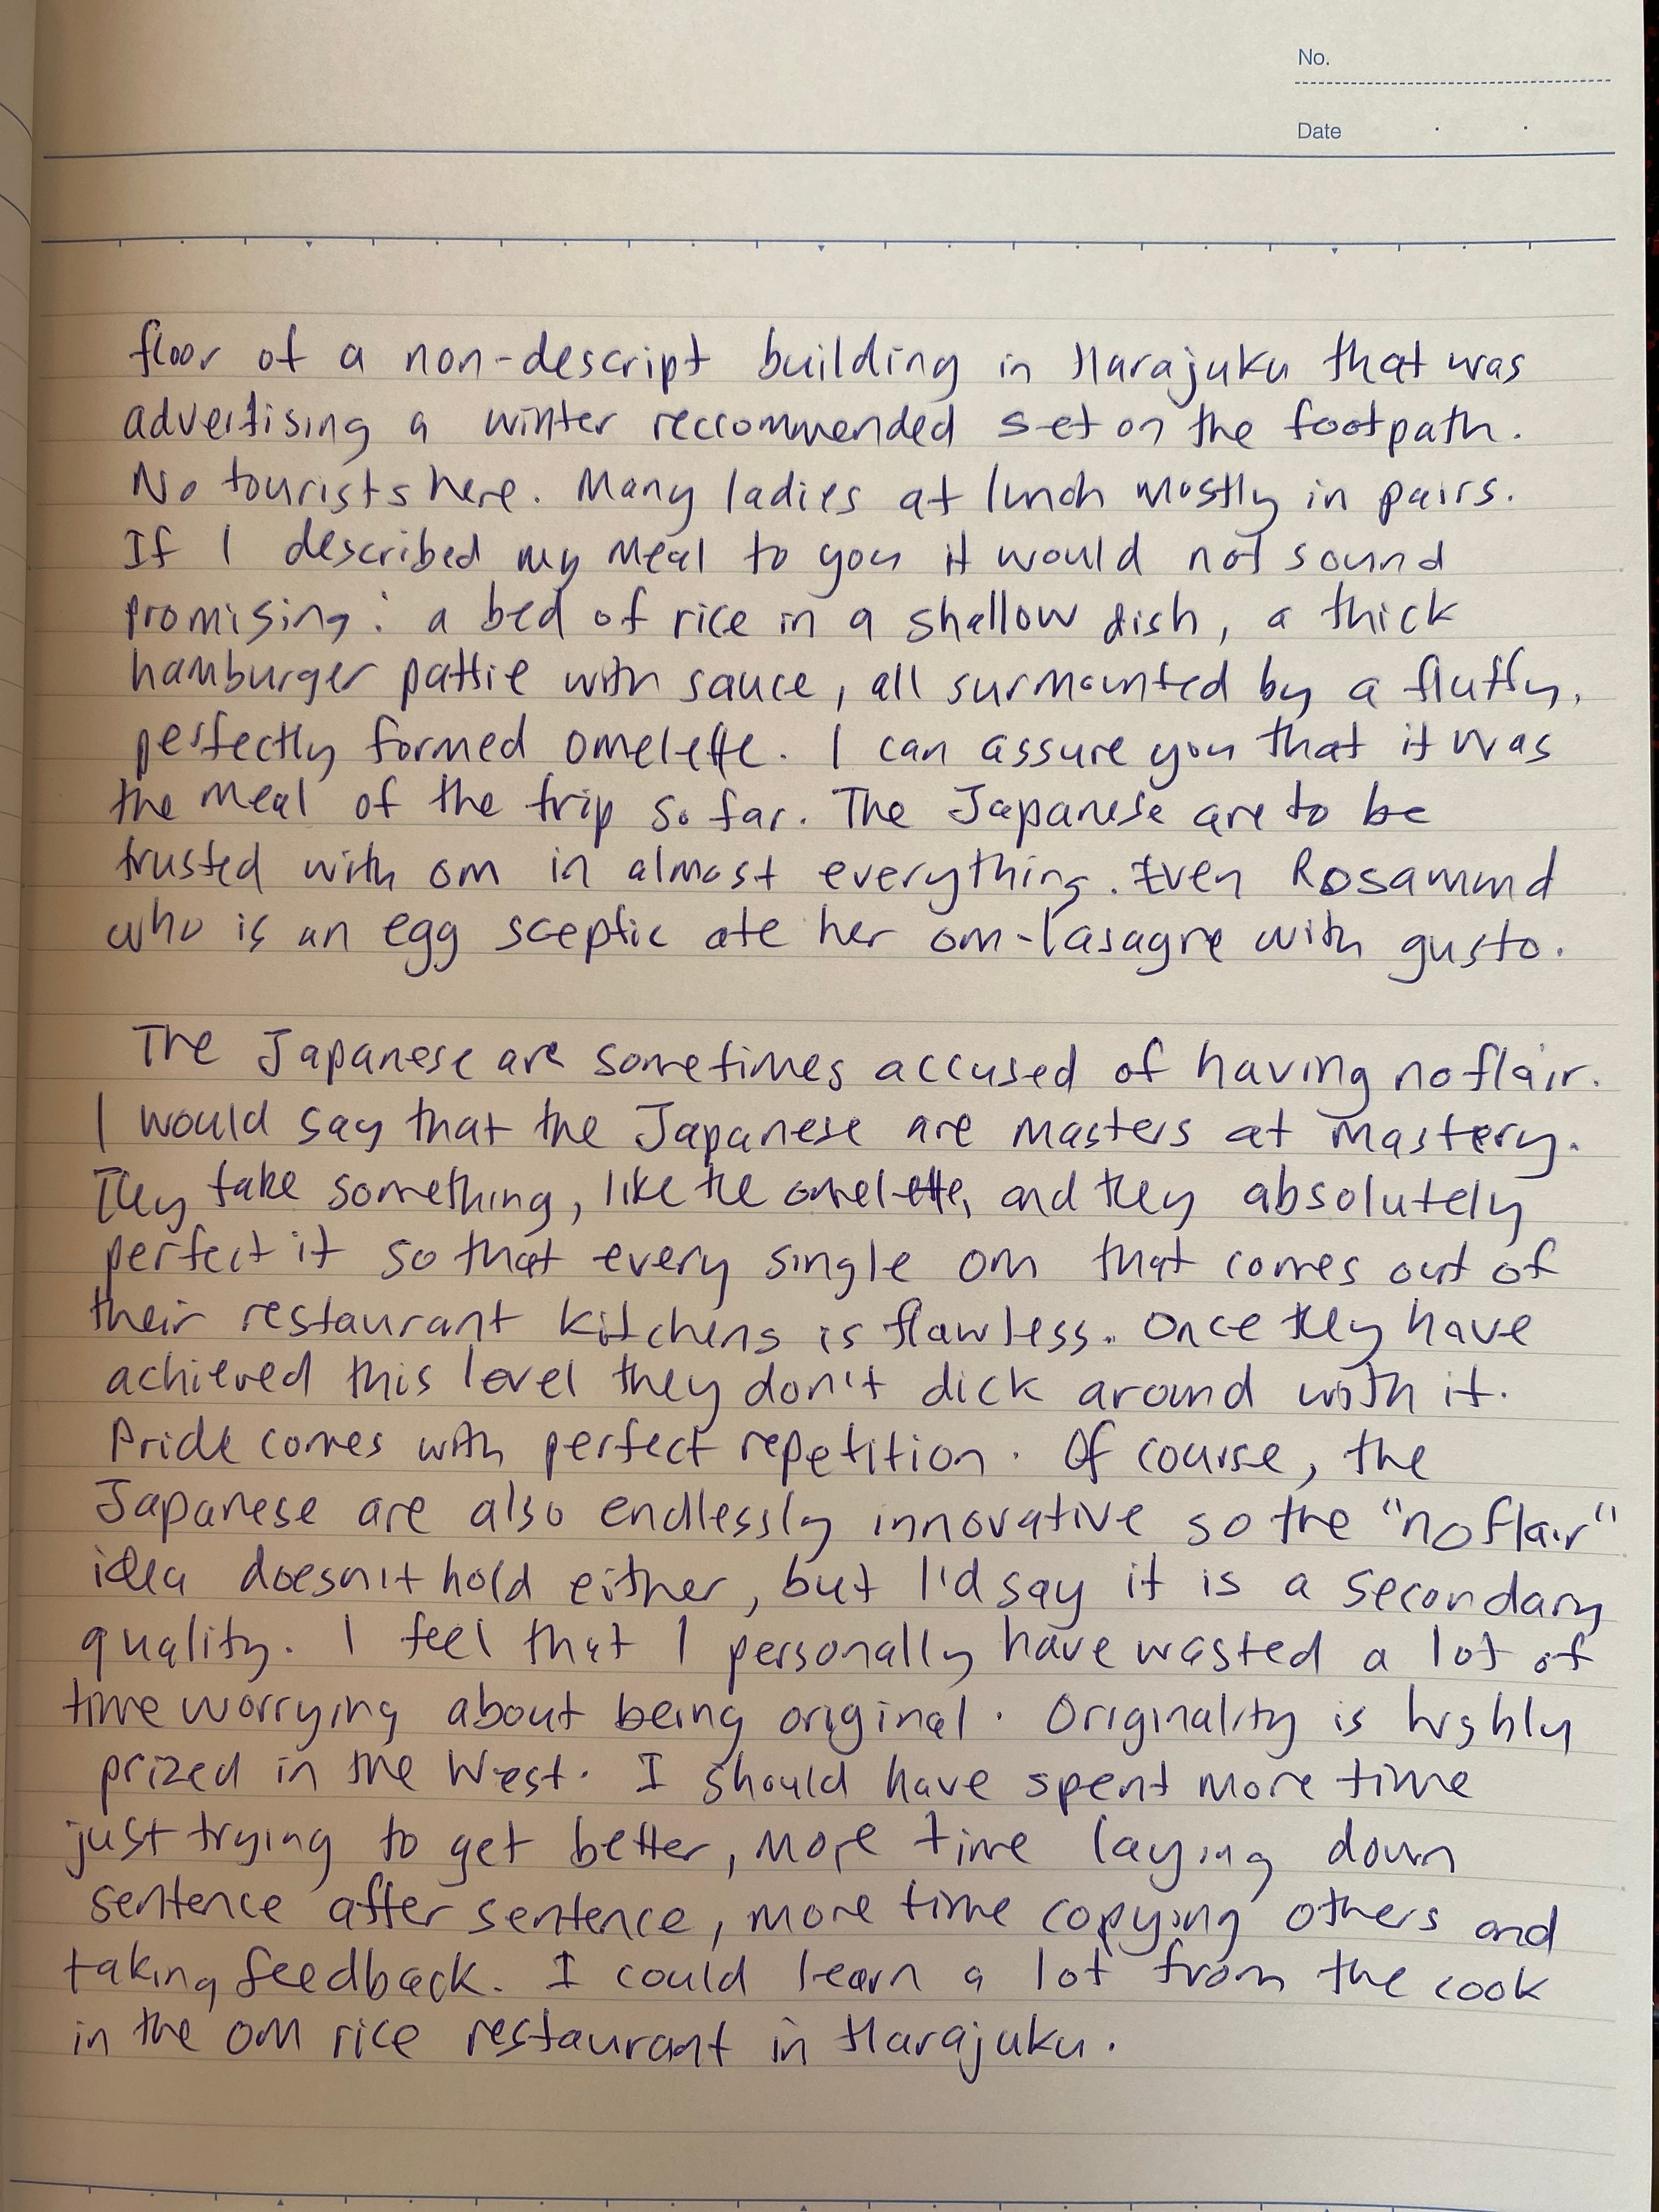 No.
Date
floor of a non-descript building in Harajuku that was
advertising a winter reccommended set on the footpath.
No tourists here. Many ladies at lunch mostly in pairs.
If I described my meal to you it would not sound
promising: a bed of rice in a shallow dish, a thick
hamburger pattie with sauce, all surmounted by a fluffy,
perfectly formed omelette. I can assure you that it was
the meal of the trip so far. The Japanese are to be
trusted with om in almost everything. Even Rosamund
who is an egg sceptic ate her om-lasagne with gusto.
The Japanese are sometimes accused of having no flair.
I would say that the Japanese are masters at mastery.
They take something, like the omelette, and they absolutely
perfect it so that every single om that comes out of
their restaurant kitchens is flawless. Once they have
achieved this level they don't dick around with it.
Pride comes with perfect repetition. Of course, the
Japanese are also endlessly innovative so the "no flair"
idea doesn't hold either, but I'd say it is a secondary
quality. I feel that I personally have wasted a lot of
time worrying about being original. Originality is highly
prized in the West. I should have spent more time
just trying to get better, more time laying down
sentence after sentence, more time copying others and
taking feedback. I could learn a lot from the cook
in the om rice restaurant in Harajuku.